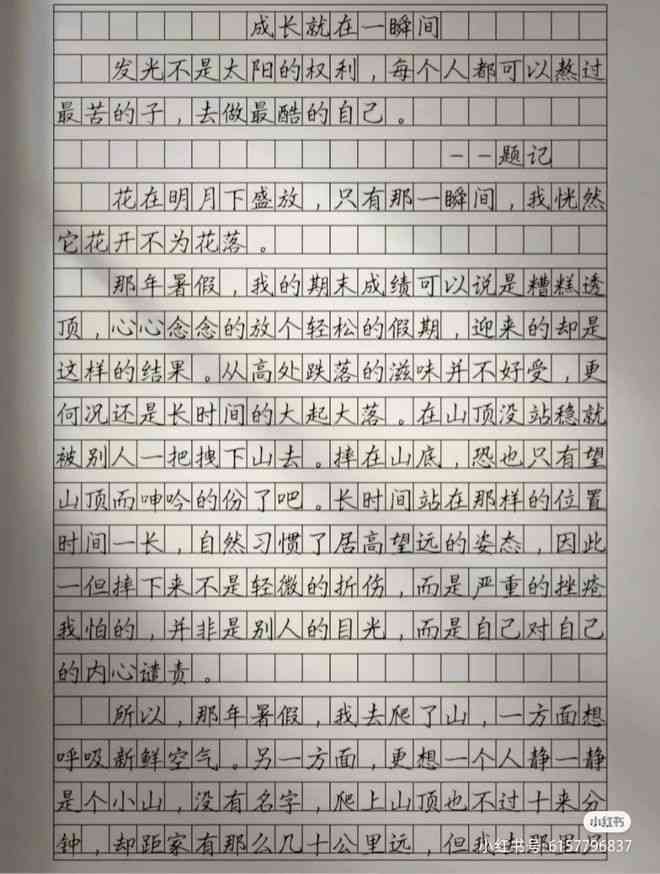 成长就在一瞬间
发光不是太阳的权利，每个人都可以熬过
最苦的子，去做最酷的自己。
--题记
花在明月下盛放，只有那一瞬间，我恍然
它花开不为花落。
那年暑假，我的期末成绩可以说是糟糕透
顶，心心念念的放个轻松的假期，迎来的却是
这样的结果。从高处跌落的滋味并不好受，更
何况还是长时间的大起大落。在山顶没站稳就
被别人一把拽下山去。摔在山底，恐也只有望
山顶而呻吟的份了吧。长时间站在那样的位置
时间一长，自然习惯了居高望远的姿态，因此
一但摔下来不是轻微的折伤，而是严重的挫疮
我怕的，并非是别人的目光，而是自己对自己
的内心谴责。
所以，那年暑假，我去爬了山，一方面想
呼吸新鲜空气。另一方面，更想一个人静一静
是个小山，没有名字，爬上山顶也不过十来分
钟，却距家有那么几十公里远，但我去那里
小红书
小红书号:6157796837